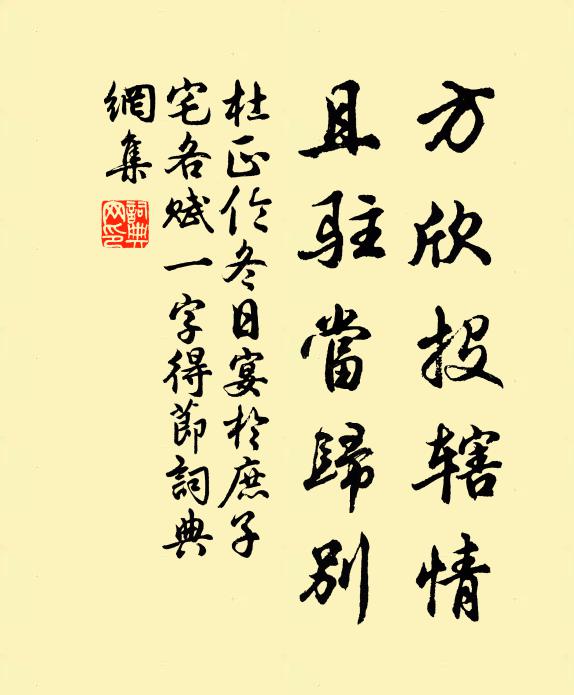 方欣投辖情
且驻當歸别
杜正倫冬日宴於庶子
宅各赋一字得節詞典
網集
詞典
網印